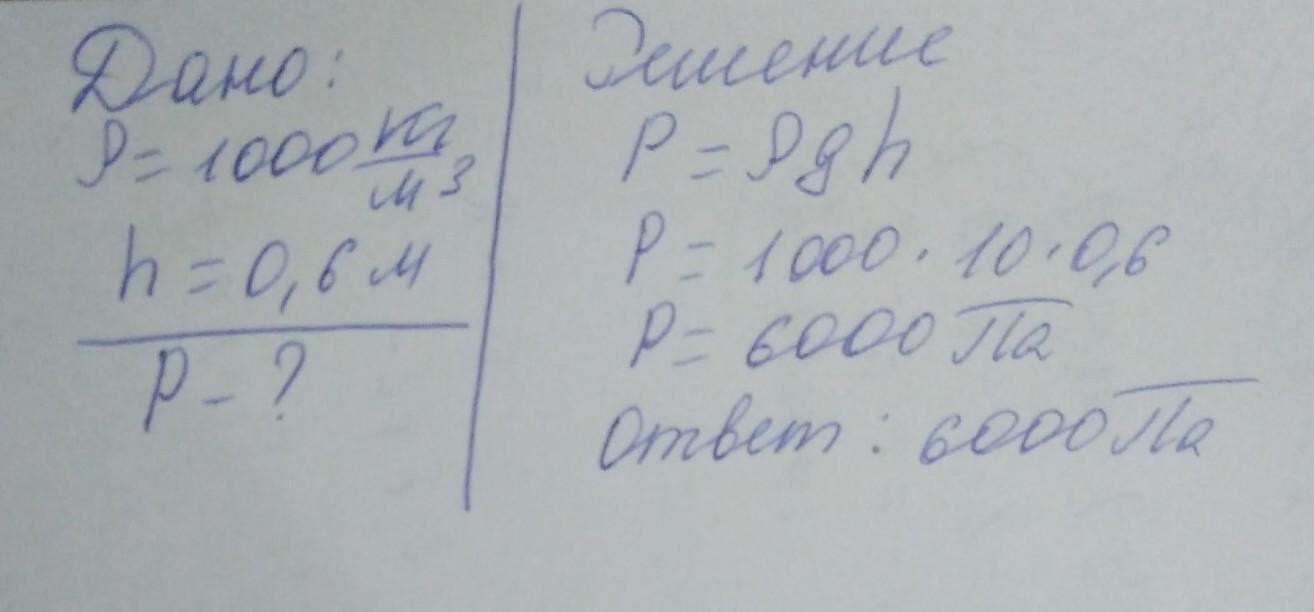 Дано:
ρ = 1000 кг/м³
h = 0,6 м
P - ?
Решение
P = ρgh
P = 1000 · 10 · 0,6
P = 6000 Па
Ответ: 6000 Па